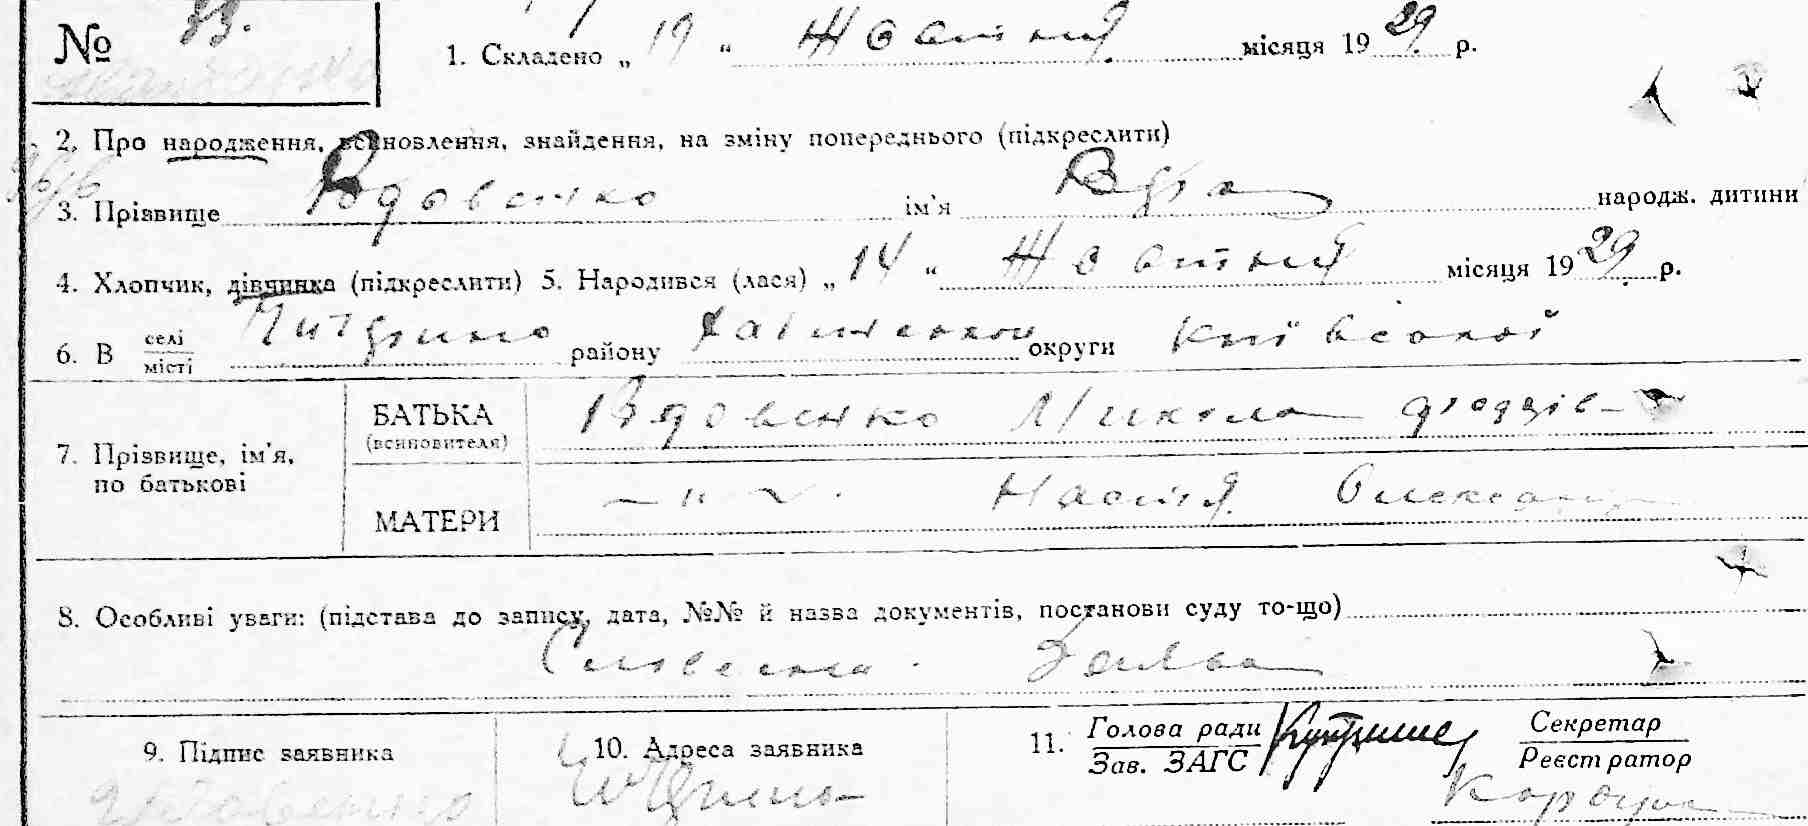 № 33.
1. Складено „ 19 “ Жовтня місяця 1929 р.
2. Про народження, всиновлення, знайдення, на зміну попереднього (підкреслити)
3. Прізвище Вдовенко ім'я народж. дитини
4. Хлопчик, дівчинка (підкреслити) 5. Народився (лася) „ 14 “ Жовтня місяця 1929 р.
6. В селі місті району округи Київської
7. Прізвище, ім'я, по батькові
БАТЬКА (всиновителя) Вдовенко Микола
МАТЕРИ —„— Настя Олександр
8. Особливі уваги: (підстава до запису, дата, №№ й назва документів, постанови суду то-що)
Словесна Заява
9. Підпис заявника 10. Адреса заявника 11. Голова ради Зав. ЗАГС Секретар Реєстратор
Вдовенко